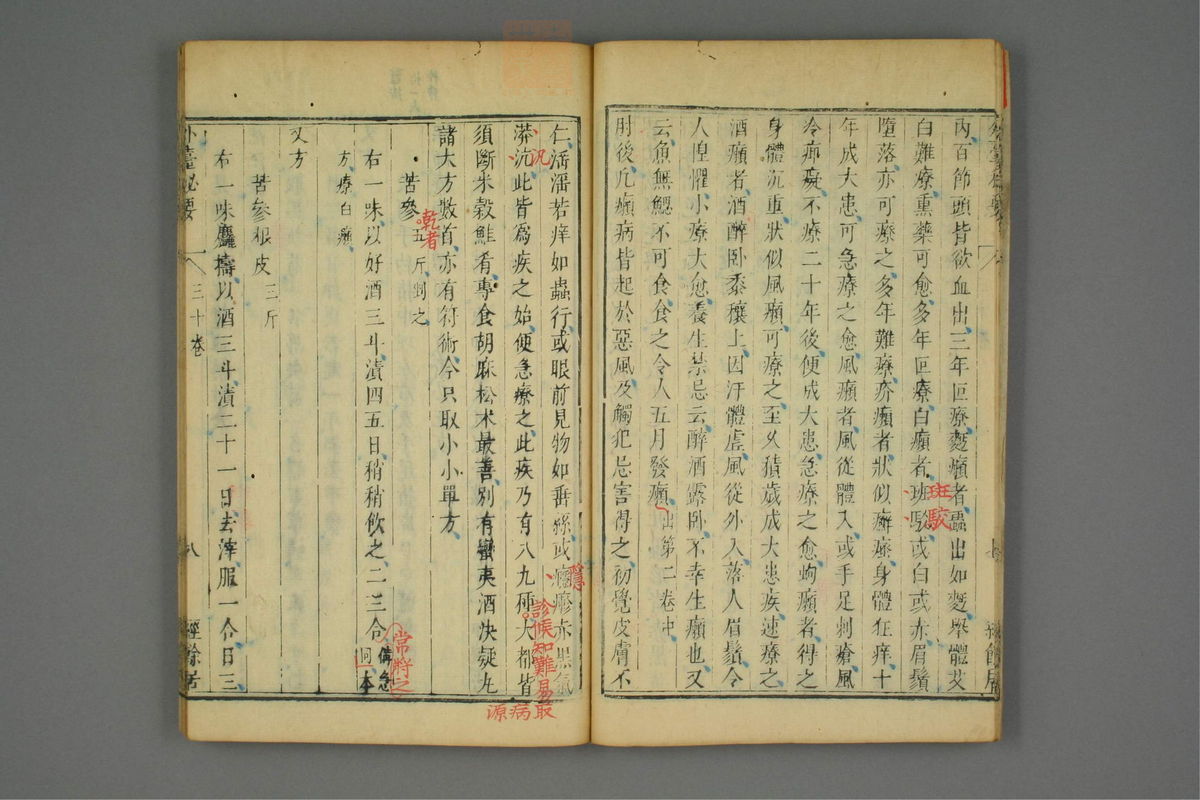 內百節頭皆欲血出三年叵療麪癩者蟲出如麪舉體艾
白難療熏藥可愈多年叵療白癩者班駮或白或赤眉鬚
班駮
墮落亦可療之多年難療疥癩者狀似癬瘙身體狂痒十
年成大患可急療之愈風癩者風從體入或手足刺瘡風
冷痹癡不療二十年後便成大患急療之愈蚼癩者得之
身體沉重狀似風癩可療之至久積歲成大患疾速療之
酒癩者酒醉卧黍穰上因汗體虛風從外入落人眉鬚令
人惶懼小療大愈養生禁忌云醉酒露卧不幸生癩也又
云魚無鰓不可食食之令人五月發癩出第二卷中
肘後凡癩病皆起於惡風及觸犯忌害得之初覺皮膚不
仁淫淫若痒如蟲行或眼前見物如垂絲或癮疹赤黑氣
隱
漭沆此皆為疾之始便急療之此疾乃有八九種大都皆
診候知難易最
病源
須斷米穀鮭肴專食胡麻松朮最善別有蠻夷酒決疑丸
諸大方數首亦有符術今只取小小單方
苦參五斤剉之
乾者
右一味以好酒三斗漬四五日稍稍飲之二三合備急同
常將之
本
方療白癩
又方
苦參根皮三斤
右一味麤擣以酒三斗漬二十一日去滓服一合日三
外臺祕要
三十卷
八
經餘居